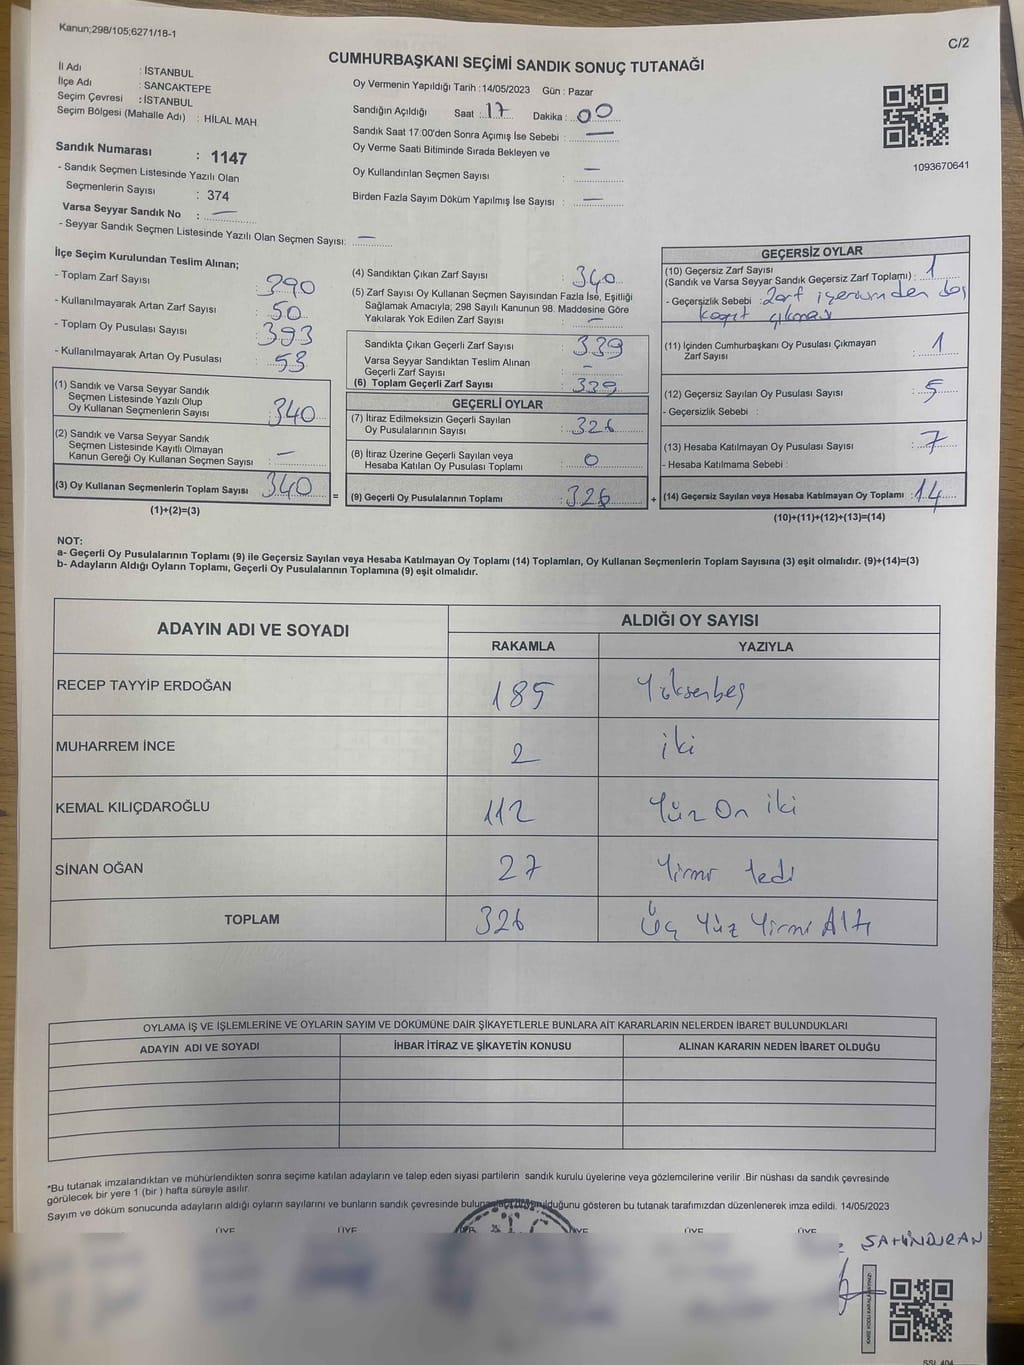 Kanun;298/105;6271/18-1
C/2
CUMHURBAŞKANI SEÇİMİ SANDIK SONUÇ TUTANAĞI
İl Adı : İSTANBUL
İlçe Adı : SANCAKTEPE
Seçim Çevresi : İSTANBUL
Seçim Bölgesi (Mahalle Adı) : HİLAL MAH
Sandık Numarası : 1147
- Sandık Seçmen Listesinde Yazılı Olan
Seçmenlerin Sayısı : 374
Varsa Seyyar Sandık No : —
- Seyyar Sandık Seçmen Listesinde Yazılı Olan Seçmen Sayısı: —
Oy Vermenin Yapıldığı Tarih : 14/05/2023 Gün : Pazar
Sandığın Açıldığı Saat : 17 Dakika : 00
Sandık Saat 17:00'den Sonra Açımış İse Sebebi : —
Oy Verme Saati Bitiminde Sırada Bekleyen ve
Oy Kullandırılan Seçmen Sayısı : —
Birden Fazla Sayım Döküm Yapılmış İse Sayısı : —
1093670641
İlçe Seçim Kurulundan Teslim Alınan;
- Toplam Zarf Sayısı : 390
- Kullanılmayarak Artan Zarf Sayısı : 50
- Toplam Oy Pusulası Sayısı : 393
- Kullanılmayarak Artan Oy Pusulası : 53
(1) Sandık ve Varsa Seyyar Sandık
Seçmen Listesinde Yazılı Olup
Oy Kullanan Seçmenlerin Sayısı : 340
(2) Sandık ve Varsa Seyyar Sandık
Seçmen Listesinde Kayıtlı Olmayan
Kanun Gereği Oy Kullanan Seçmen Sayısı : —
(3) Oy Kullanan Seçmenlerin Toplam Sayısı 340
(1)+(2)=(3)
=
(4) Sandıktan Çıkan Zarf Sayısı : 340
(5) Zarf Sayısı Oy Kullanan Seçmen Sayısından Fazla İse, Eşitliği
Sağlamak Amacıyla; 298 Sayılı Kanunun 98. Maddesine Göre
Yakılarak Yok Edilen Zarf Sayısı : —
Sandıkta Çıkan Geçerli Zarf Sayısı : 339
Varsa Seyyar Sandıktan Teslim Alınan
Geçerli Zarf Sayısı : -
(6) Toplam Geçerli Zarf Sayısı : 339
GEÇERLİ OYLAR
(7) İtiraz Edilmeksizin Geçerli Sayılan
Oy Pusulalarının Sayısı : 326
(8) İtiraz Üzerine Geçerli Sayılan veya
Hesaba Katılan Oy Pusulası Toplamı : 0
(9) Geçerli Oy Pusulalarının Toplamı : 326
+
GEÇERSİZ OYLAR
(10) Geçersiz Zarf Sayısı
(Sandık ve Varsa Seyyar Sandık Geçersiz Zarf Toplamı) : 1
- Geçersizlik Sebebi : Zarf içerisinden boş
kağıt çıkması
(11) İçinden Cumhurbaşkanı Oy Pusulası Çıkmayan
Zarf Sayısı : 1
(12) Geçersiz Sayılan Oy Pusulası Sayısı : 5
- Geçersizlik Sebebi :
(13) Hesaba Katılmayan Oy Pusulası Sayısı : 7
- Hesaba Katılmama Sebebi :
(14) Geçersiz Sayılan veya Hesaba Katılmayan Oy Toplamı : 14
(10)+(11)+(12)+(13)=(14)
NOT:
a- Geçerli Oy Pusulalarının Toplamı (9) ile Geçersiz Sayılan veya Hesaba Katılmayan Oy Toplamı (14) Toplamları, Oy Kullanan Seçmenlerin Toplam Sayısına (3) eşit olmalıdır. (9)+(14)=(3)
b- Adayların Aldığı Oyların Toplamı, Geçerli Oy Pusulalarının Toplamına (9) eşit olmalıdır.
ADAYIN ADI VE SOYADI
ALDIĞI OY SAYISI
RAKAMLA YAZIYLA
RECEP TAYYİP ERDOĞAN 185 Yüksenbeş
MUHARREM İNCE 2 iki
KEMAL KILIÇDAROĞLU 112 Yüz On iki
SİNAN OĞAN 27 Yirmi Yedi
TOPLAM 326 Üç Yüz Yirmi Altı
OYLAMA İŞ VE İŞLEMLERİNE VE OYLARIN SAYIM VE DÖKÜMÜNE DAİR ŞİKAYETLERLE BUNLARA AİT KARARLARIN NELERDEN İBARET BULUNDUKLARI
ADAYIN ADI VE SOYADI İHBAR İTİRAZ VE ŞİKAYETİN KONUSU ALINAN KARARIN NEDEN İBARET OLDUĞU
*Bu tutanak imzalandıktan ve mühürlendikten sonra seçime katılan adayların ve talep eden siyasi partilerin sandık kurulu üyelerine veya gözlemcilerine verilir .Bir nüshası da sandık çevresinde
görülecek bir yere 1 (bir ) hafta süreyle asılır.
Sayım ve döküm sonucunda adayların aldığı oyların sayılarını ve bunların sandık çevresinde olduğunu gösteren bu tutanak tarafımızdan düzenlenerek imza edildi. 14/05/2023
ÜYE ÜYE ÜYE ÜYE ÜYE
ŞAHİNDURAN